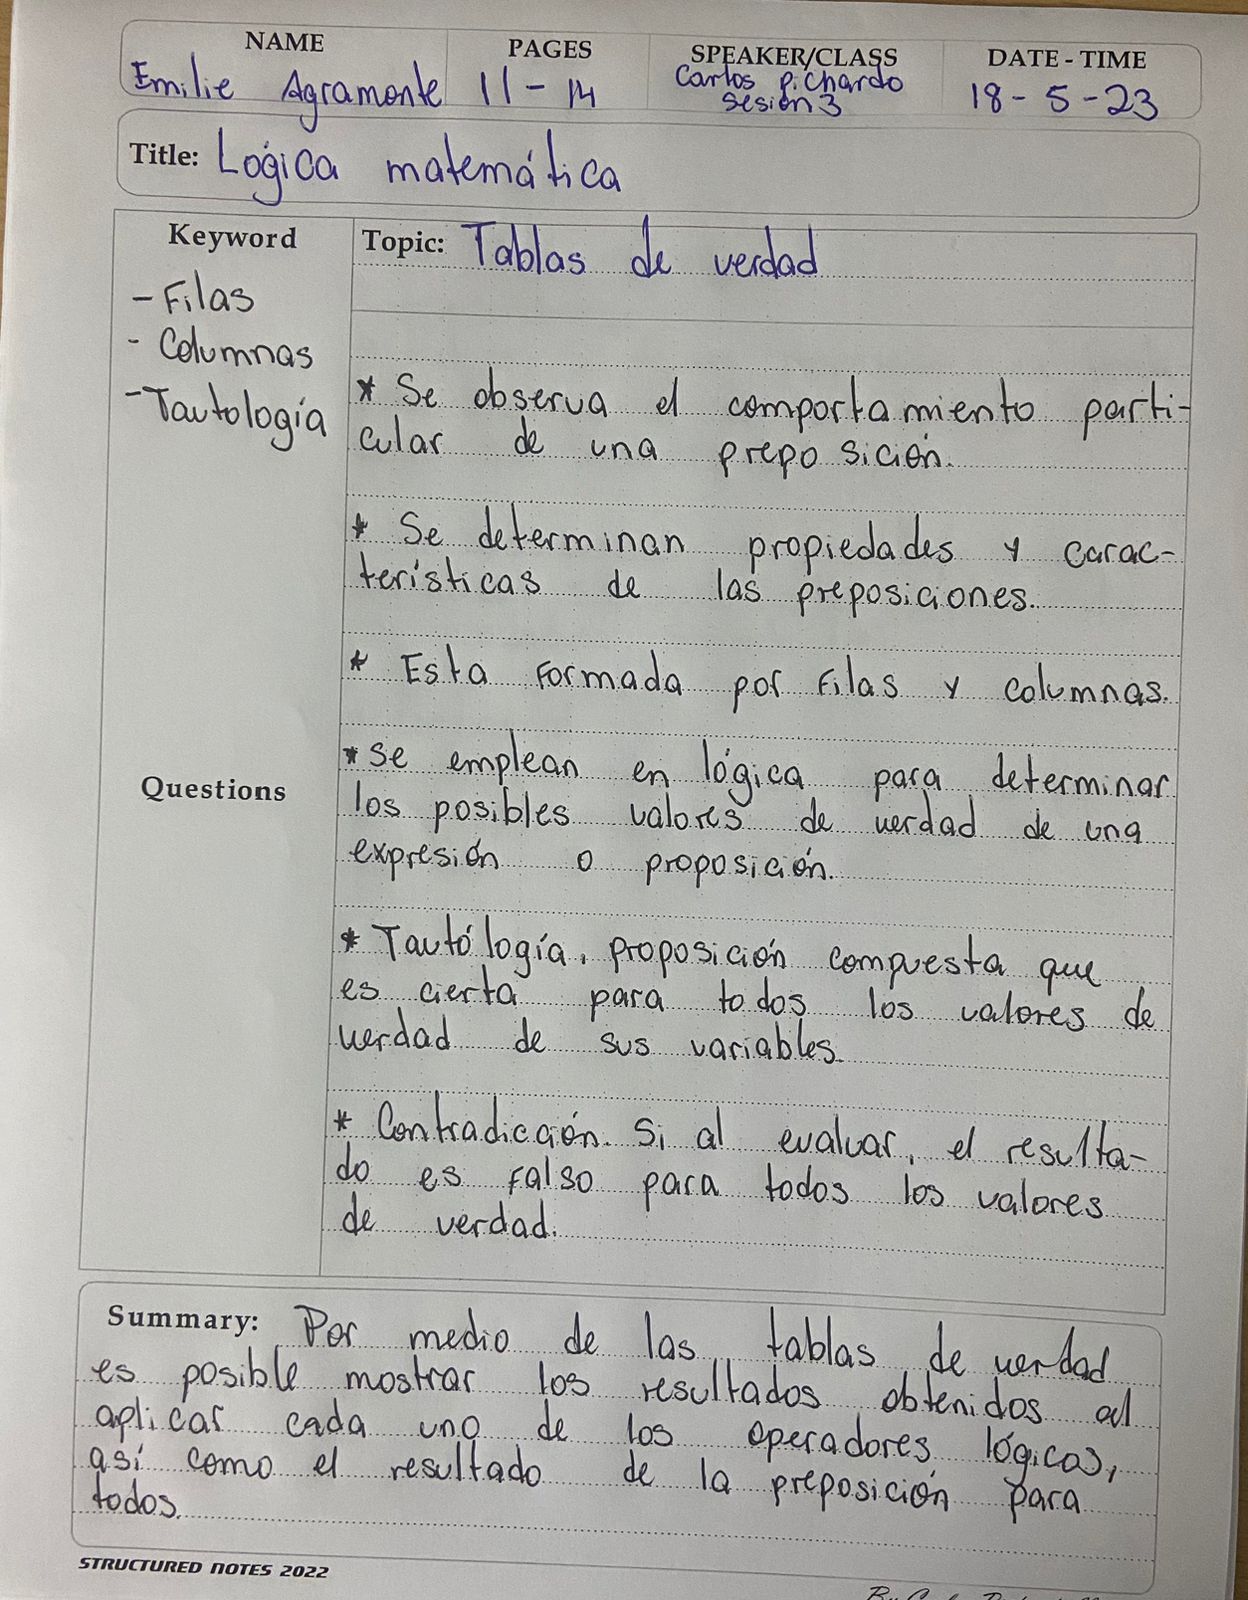 NAME PAGES SPEAKER/CLASS DATE - TIME
Emilie Agramonte 11 - 14 Carlos Pichardo sesión 3 18 - 5 - 23
Title: Lógica matemática
Keyword
- Filas
- Columnas
- Tautología
Questions
Topic: Tablas de verdad
* Se observa el comportamiento parti-
cular de una preposición.
* Se determinan propiedades y carac-
terísticas de las preposiciones.
* Esta formada por filas y columnas.
* Se emplean en lógica para determinar
los posibles valores de verdad de una
expresión o proposición.
* Tautología, proposición compuesta que
es cierta para todos los valores de
verdad de sus variables.
* Contradicción. Si al evaluar, el resulta-
do es falso para todos los valores
de verdad.
Summary: Por medio de las tablas de verdad
es posible mostrar los resultados obtenidos al
aplicar cada uno de los operadores lógicos,
así como el resultado de la preposición para
todos.
STRUCTURED NOTES 2022